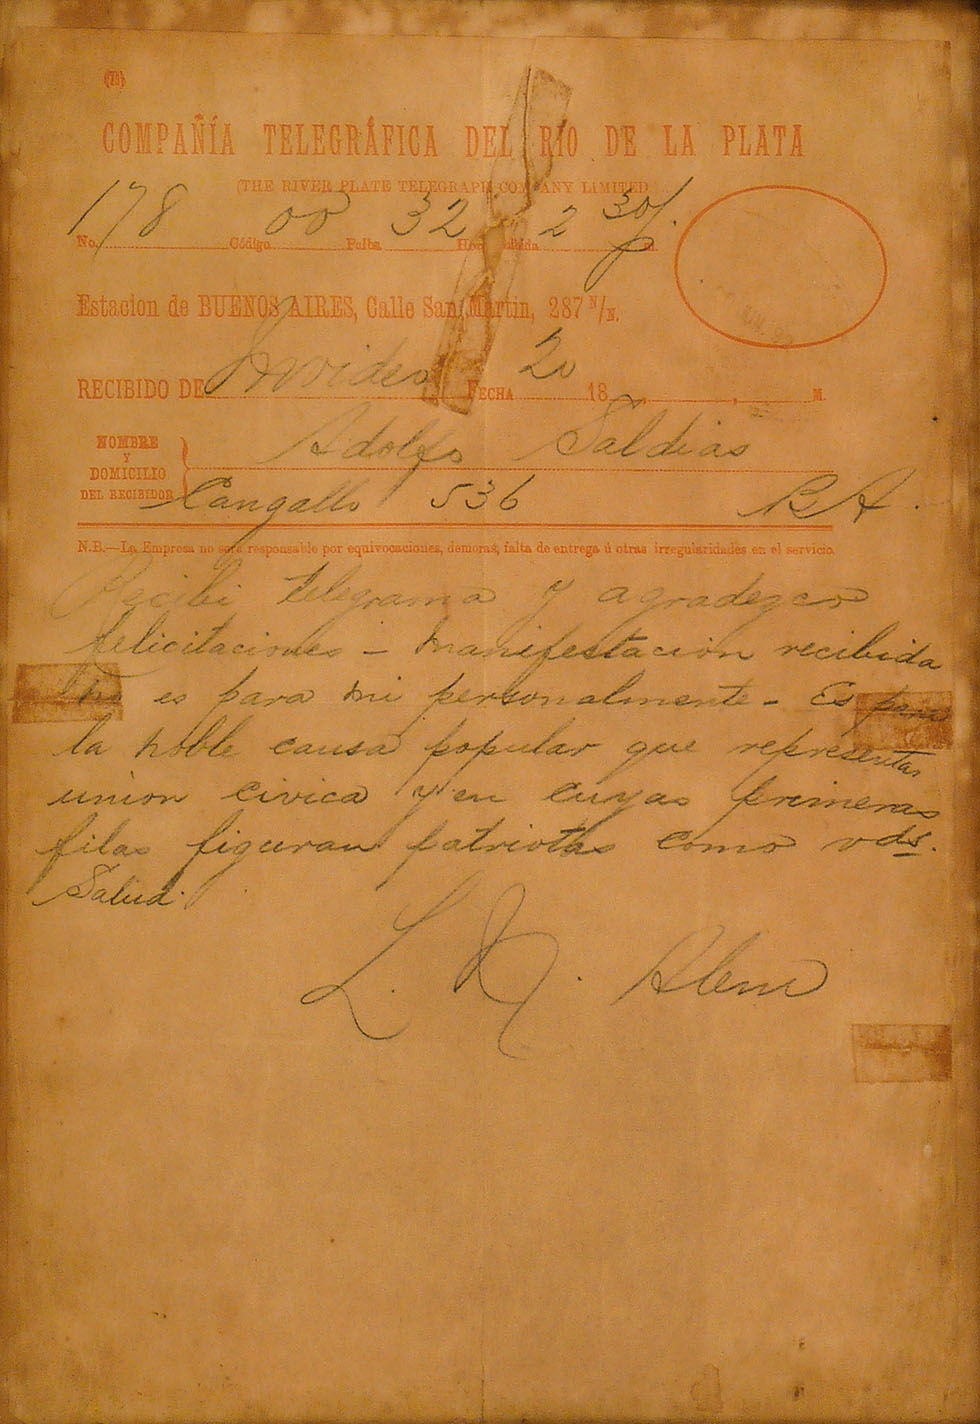 COMPAÑÍA TELEGRÁFICA DEL RIO DE LA PLATA
(THE RIVER PLATE TELEGRAPH COMPANY LIMITED
178 00 32 2 30
No. Código Palbs.
Estacion de BUENOS AIRES, Calle San Martin, 287 N/N.
RECIBIDO DE Mvideo FECHA 20 18 , , M.
NOMBRE Y DOMICILIO DEL RECIBIDOR
Adolfo Saldias
Cangallo 536 BA.
N.B.—La Empresa no será responsable por equivocaciones, demoras, falta de entrega ú otras irregularidades en el servicio.
Recibi telegrama y agradezco
felicitaciones - manifestacion recibida
no es para mi personalmente - Es para
la noble causa popular que representa
union civica y en cuyas primeras
filas figuran patriotas como vds.
Salud.
L. N. Alem